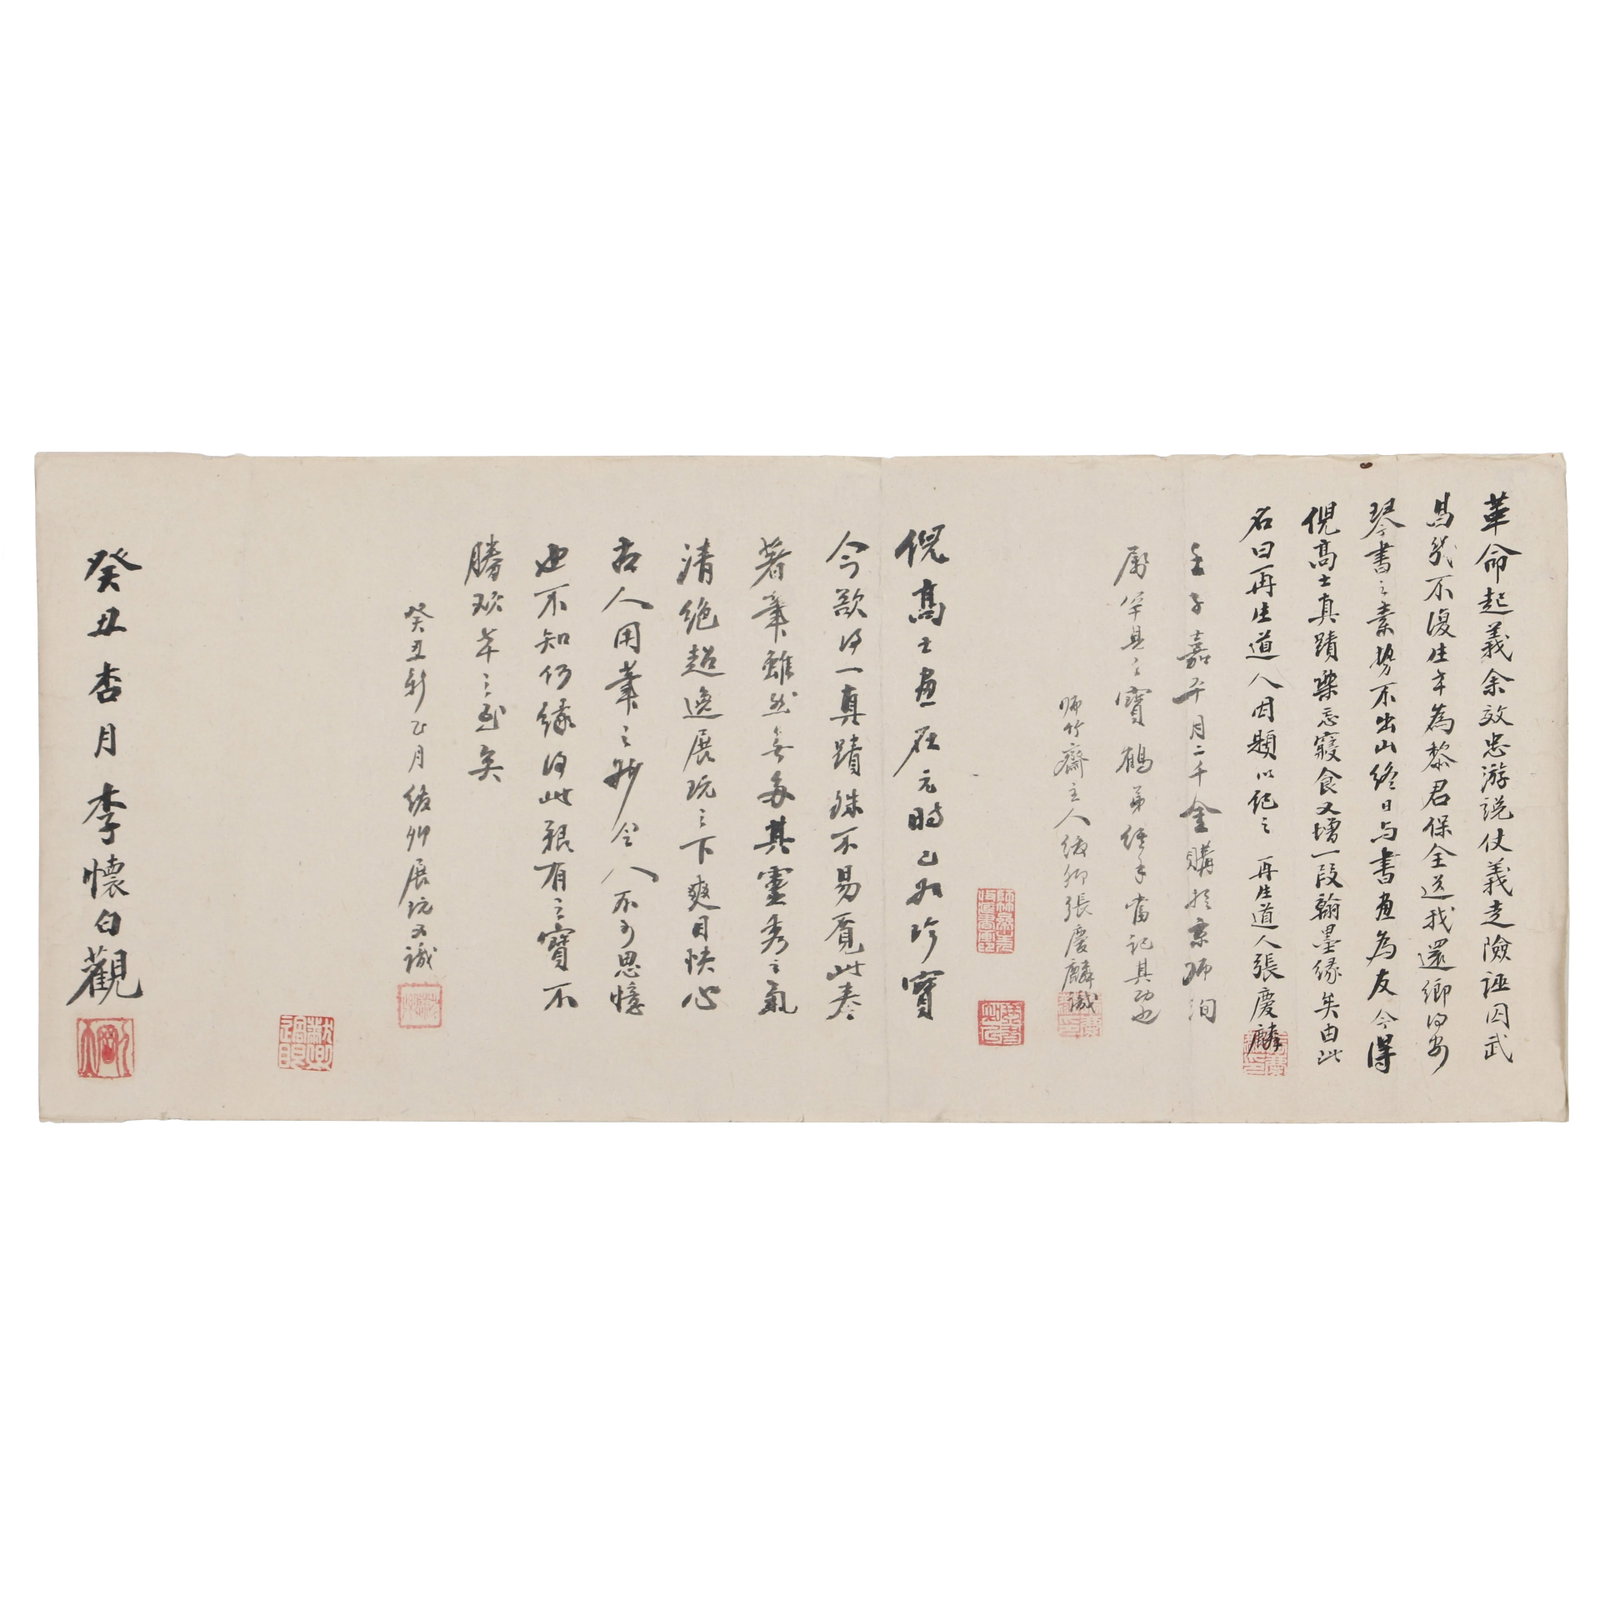 革命起義余效忠游説仗義走險誣囚武
昌幾不復生幸為黎君保全送我還鄉得安
琴書之素勢不出山終日与書畫為友今得
倪高士真蹟樂忘寢食又增一段翰墨緣矣由此
名曰再生道人因題以紀之 再生道人張慶麟
壬子嘉平月二千金購於京師洵
屬罕見之寶鶴弟經手當記其功也
師竹齋主人紱卿張慶麟識
倪高士畫在元時已為珍寶
今欲得一真蹟殊不易覓此卷
著筆雖然無多其靈秀之氣
清絶超逸展玩之下爽目快心
古人用筆之妙令人不可思憶
也不知何緣得此難有之寶不
勝欣幸之至矣
癸丑新正月紱卿展玩又識
癸丑杏月李懷白觀